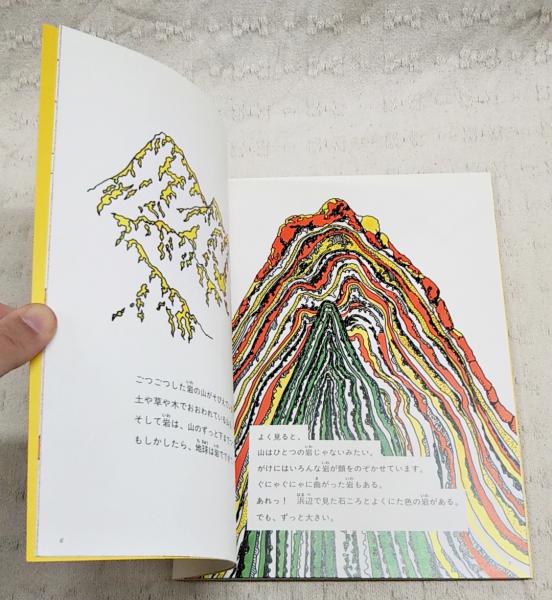 ごつごつした岩の山がそびえ
土や草や木でおおわれている
そして岩は、山のずっと下まで
もしかしたら、地球は岩で
よく見ると、
山はひとつの岩じゃないみたい。
がけにはいろんな岩が顔をのぞかせています。
ぐにゃぐにゃに曲がった岩もある。
あれっ! 浜辺で見た石ころとよくにた色の岩がある。
でも、ずっと大きい。